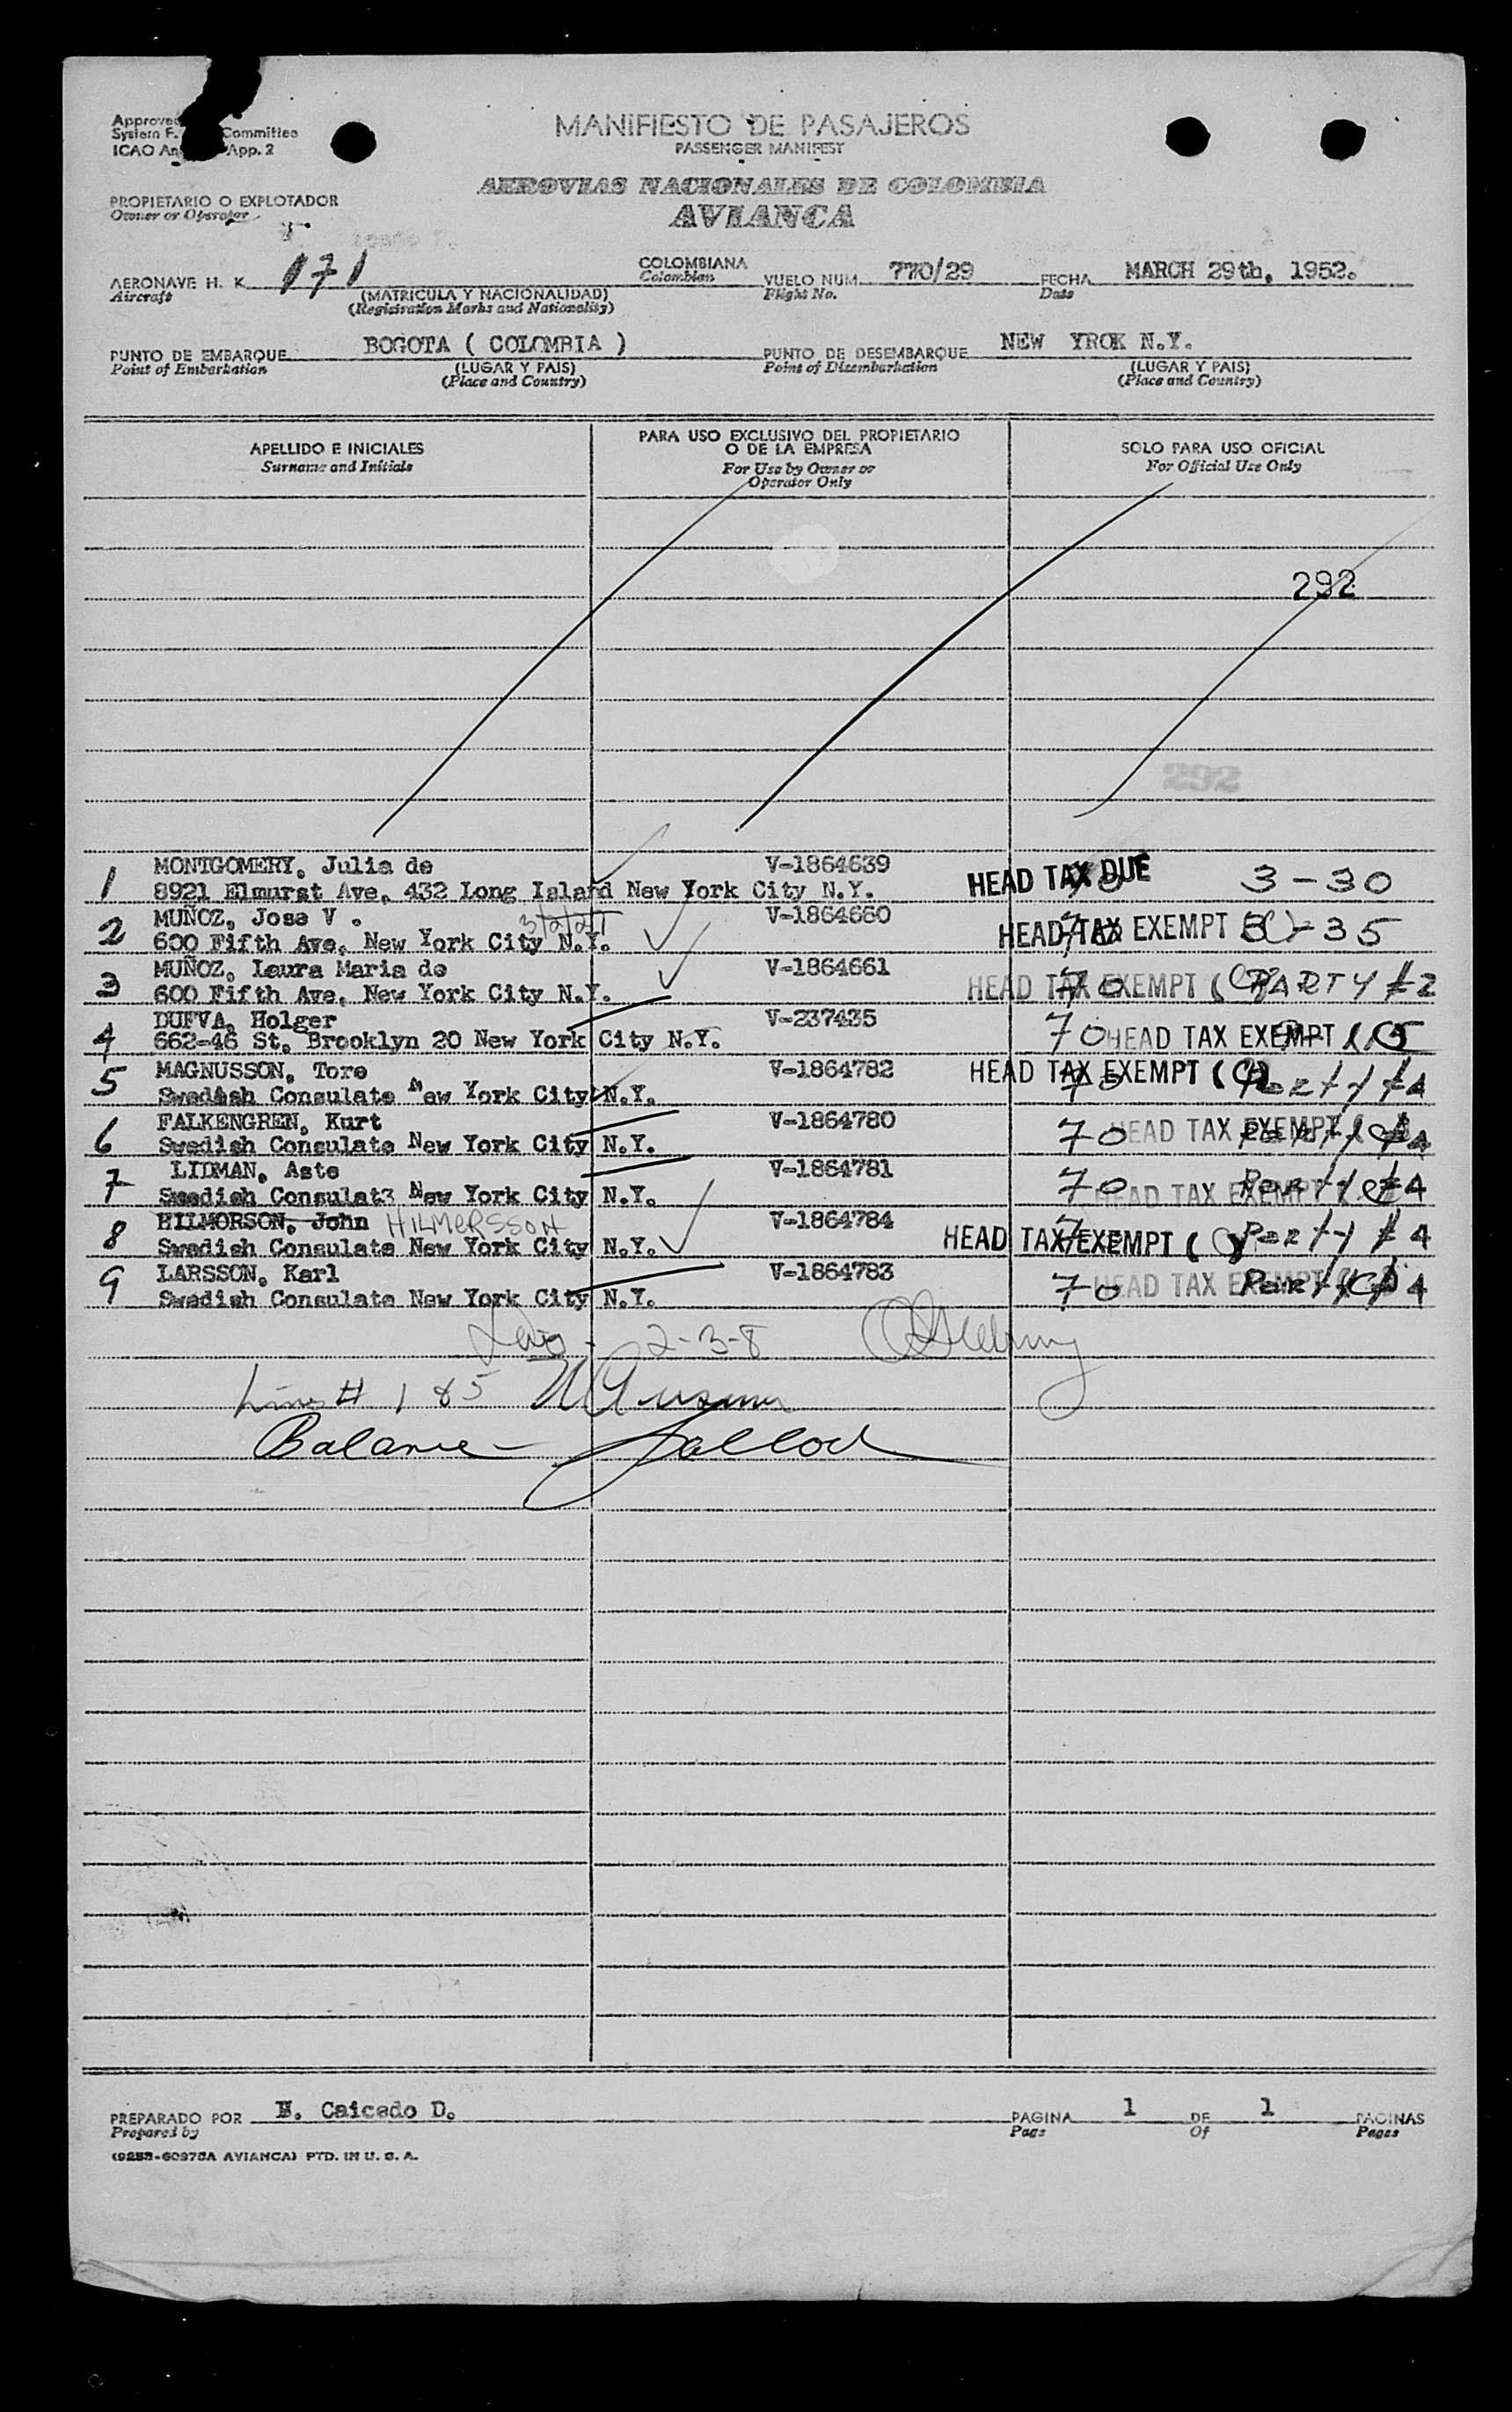 MANIFIESTO DE PASAJEROS
PASSENGER MANIFEST
Approved
System F. Committee
ICAO App. 2
AEROVIAS NACIONALES DE COLOMBIA
AVIANCA
PROPIETARIO O EXPLOTADOR
Owner or Operator
AERONAVE H. K. 171 COLOMBIANA VUELO NUM. 770/29 FECHA MARCH 29th, 1952.
Aircraft (MATRICULA Y NACIONALIDAD) Colombian Flight No. Date
(Registration Marks and Nationality)
PUNTO DE EMBARQUE BOGOTA ( COLOMBIA ) PUNTO DE DESEMBARQUE NEW YROK N.Y.
Point of Embarkation (LUGAR Y PAIS) Point of Disembarkation (LUGAR Y PAIS)
(Place and Country) (Place and Country)
APELLIDO E INICIALES PARA USO EXCLUSIVO DEL PROPIETARIO SOLO PARA USO OFICIAL
O DE LA EMPRESA
Surname and Initials For Use by Owner or For Official Use Only
Operator Only
292
292
1 MONTGOMERY, Julia de V-1864639 HEAD TAX DUE 70 3-30
8921 Elmurst Ave, 432 Long Island New York City N.Y.
2 MUÑOZ, Jose V . V-1864660 HEAD TAX EXEMPT 70 -35
600 Fifth Ave, New York City N.Y.
3 MUÑOZ, Laura Maria de V-1864661 HEAD TAX EXEMPT 70 PARTY #2
600 Fifth Ave, New York City N.Y.
4 DUFVA, Holger V-237435 70 HEAD TAX EXEMPT
662-46 St, Brooklyn 20 New York City N.Y.
5 MAGNUSSON, Tore V-1864782 HEAD TAX EXEMPT 70 Party #4
Swedish Consulate New York City N.Y.
6 FALKENGREN, Kurt V-1864780 70 HEAD TAX EXEMPT Party #4
Swedish Consulate New York City N.Y.
7 LIDMAN, Aste V-1864781 70 HEAD TAX EXEMPT Party #4
Swedish Consulat3 New York City N.Y.
8 HILMORSON, John HILMERSSON V-1864784 HEAD TAX EXEMPT 70 Party #4
Swedish Consulate New York City N.Y.
9 LARSSON, Karl V-1864783 70 HEAD TAX EXEMPT Party #4
Swedish Consulate New York City N.Y.
2-3-8
Lines # 1 & 5
Balance
PREPARADO POR N. Caicedo D. PAGINA 1 DE 1 PAGINAS
Prepared by Page Of Pages
(9253-60975A AVIANCA) PTD. IN U. S. A.